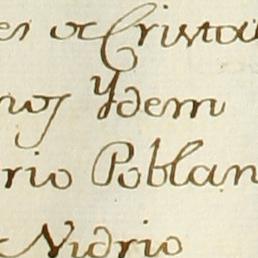 es de Crista
nos Ydem
rio Poblan
Nidrio